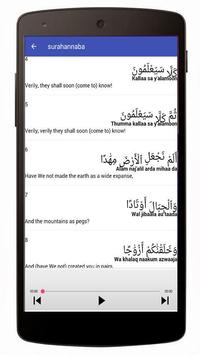 surahannaba
4
كَلَّا سَيَعْلَمُونَ
Kallaa sa y'alamoon
Verily, they shall soon (come to) know!
5
ثُمَّ كَلَّا سَيَعْلَمُونَ
Thumma kallaa sa y'alamoon
Verily, verily they shall soon (come to) know!
6
أَلَمْ نَجْعَلِ ٱلْأَرْضَ مِهَٰدًا
Alam naj'alil arda mihaa da
Have We not made the earth as a wide expanse,
7
وَٱلْجِبَالَ أَوْتَادًا
Wal jibaala au taada
And the mountains as pegs?
8
وَخَلَقْنَٰكُمْ أَزْوَٰجًا
Wa khalaq naakum azwaaja
And (have We not) created you in pairs,
0:00
0:00